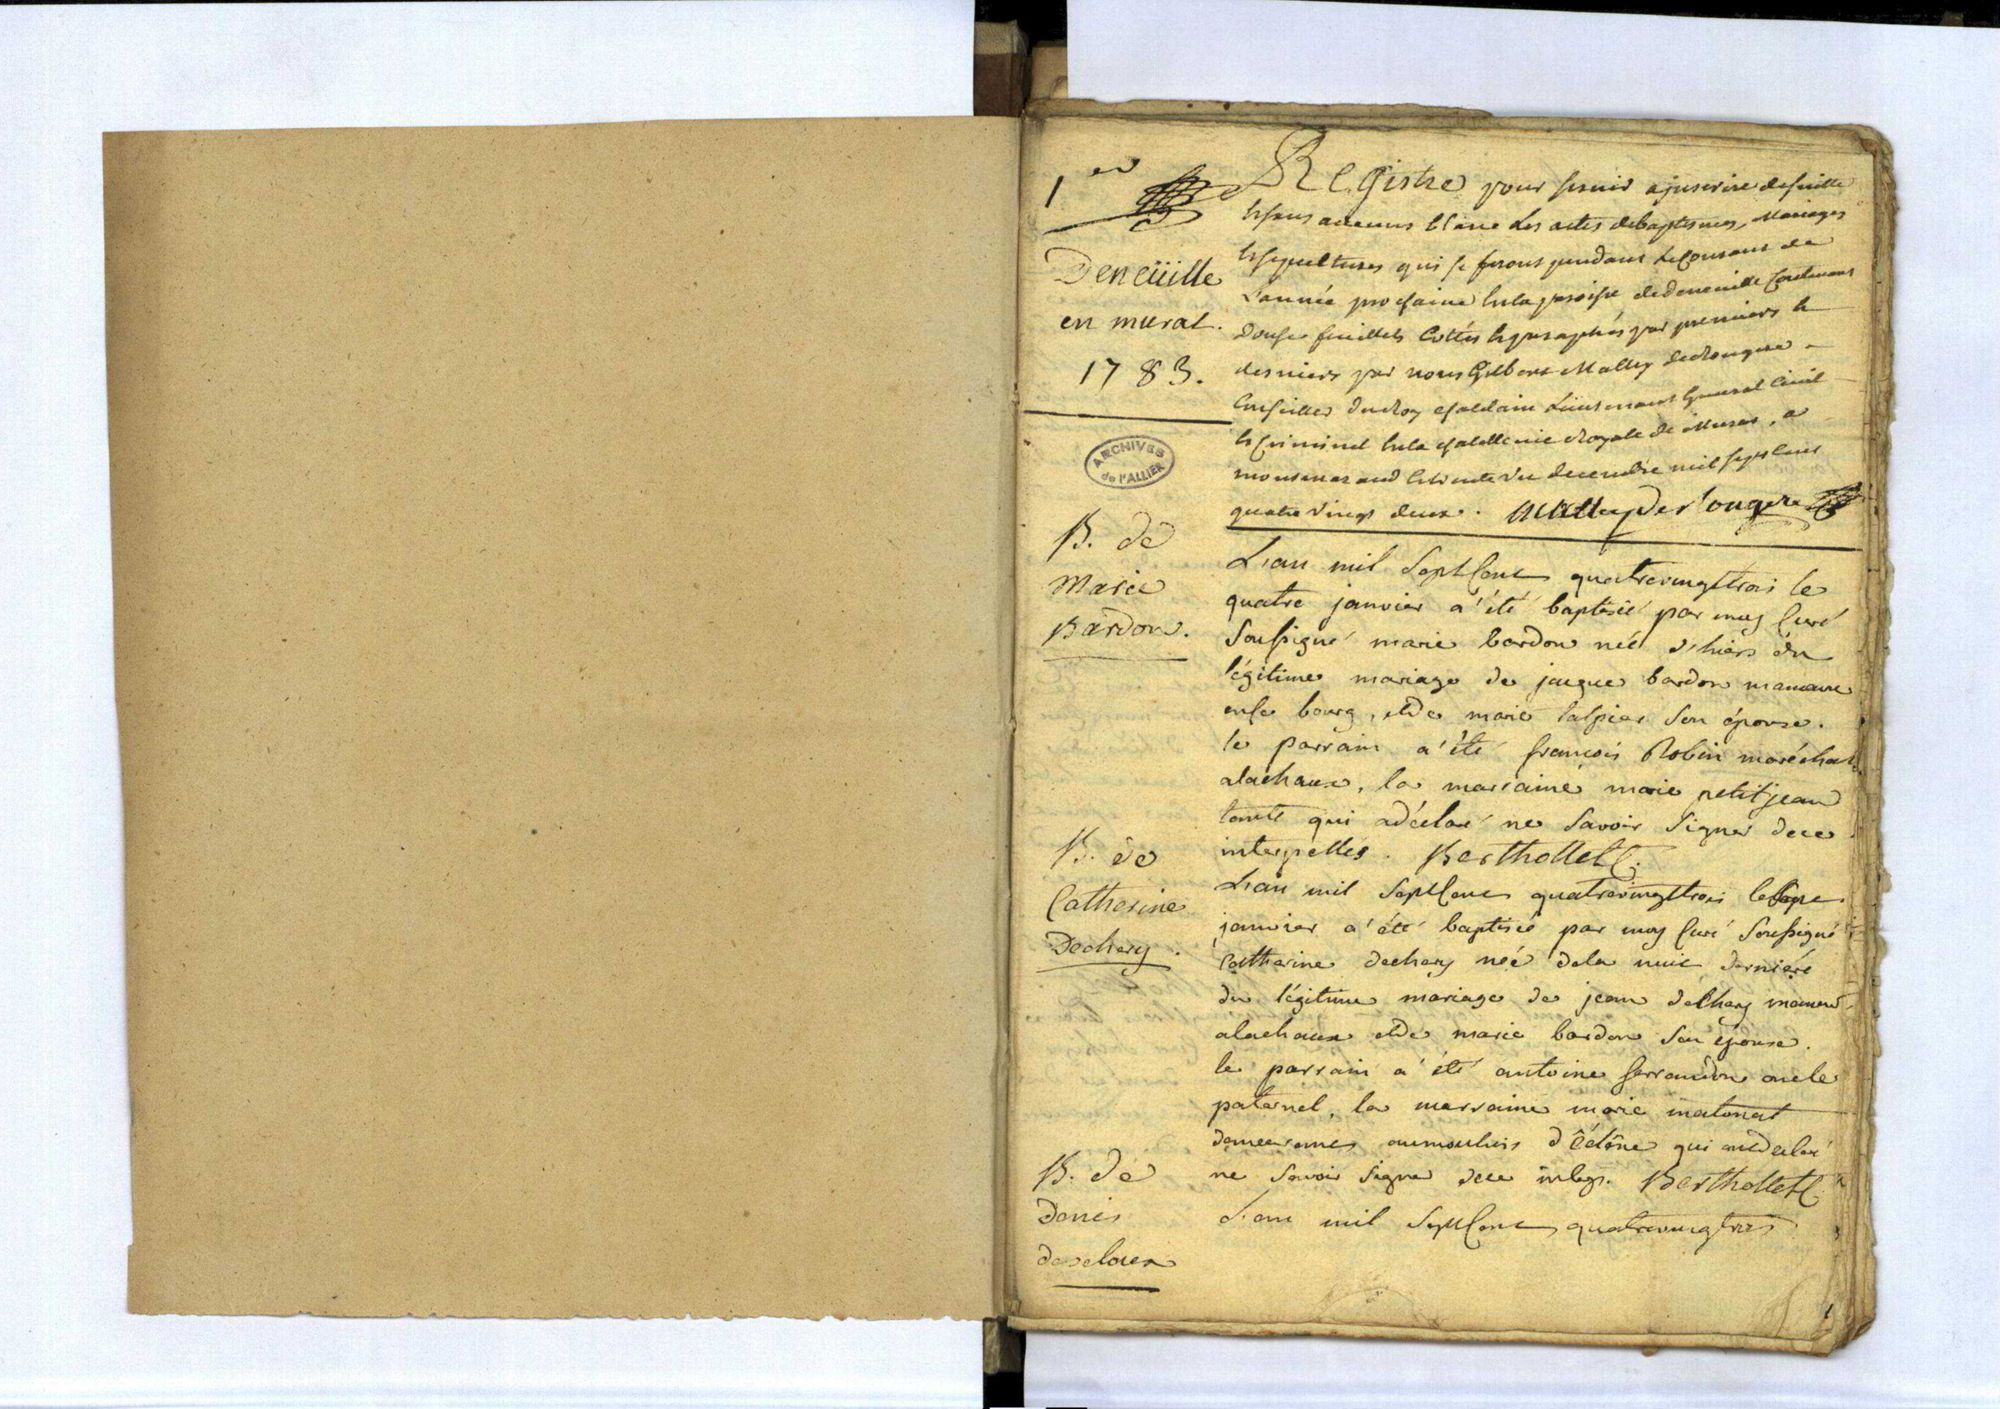 1er
Deneüille
en murat.
1783.
Registre pour servir a inscrire de suitte
et sans aucuns blanc Les actes de baptesmes, Mariages
et sepultures qui se feront pendant Le Courant de
L'année prochaine en la paroisse de deneuille Contenant
douse feuillets Cottés et paraphés par premiers et
derniers par nous Gilbert Malley
Conseiller du Roy Chatelain Lieutenant General Civil
et Criminel en la Chatellenie Royale de Murat, a
montmaraud le trente un decembre mil sept Cent
quatre vingt deux.
ARCHIVES
de l'ALLIER
B. de
Marie
Bardon.
L'an mil Sept Cent quatrevingttrois le
quatre janvier a été baptisée par moy Curé
Soussigné marie bardon née d'hier du
légitime mariage de jacque bardon manœuvre
en ce bourg, et de marie son épouse.
le parrain a été françois Robin maréchal
a lachaux, la marraine marie petitjean
tante qui a déclaré ne Savoir Signer de ce
interpellés. Berthollet C.
B. de
Catherine
Dechery.
L'an mil Sept Cent quatrevingttrois le Sept
janvier a été baptisée par moy Curé Soussigné
Catherine dechery née dela nuit dernière
du légitime mariage de jean dechery manœuv.
a lachaux et de marie bardon Son épouse.
le parrain a été antoine ferrandon oncle
paternel, la marraine marie matonat
au moulin qui ont declaré
ne Savoir Signer de ce interp. Berthollet C.
B. de
Denis
L'an mil Sept Cent quatrevingttrois
1